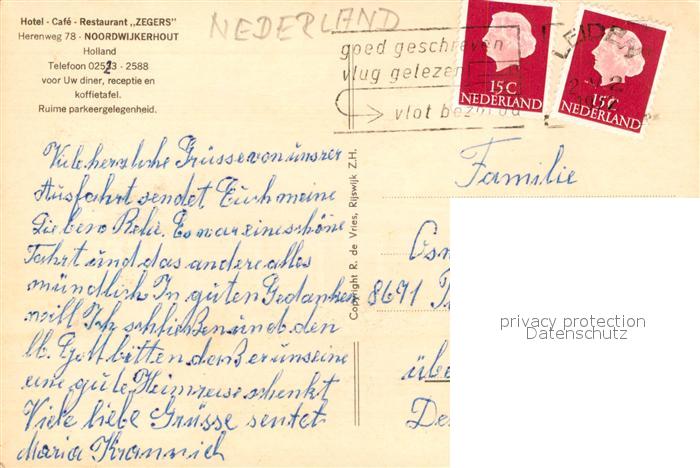 Hotel - Café - Restaurant „ZEGERS"
Herenweg 78 - NOORDWIJKERHOUT
Holland
Telefoon 02523 - 2588
voor Uw diner, receptie en
koffietafel.
Ruime parkeergelegenheid.
NEDERLAND
goed geschreven
vlug gelezen
vlot bezorgd
LEIDEN
15C
NEDERLAND
15C
NEDERLAND
Viele herzliche Grüsse von unsrer
Ausfahrt sendet Euch meine
Lieben Relie. Es war eine schöne
Fahrt und das andere alles
mündlich In guten Gedanken
will Ich schließen und den
lb. Gott bitten daß er uns eine
eine gute Heimreise schenkt
Viele liebe Grüsse sentet
Maria Krannich
Copyright R. de Vries, Rijswijk Z.H.
Familie
Osn
8671
übe
De
privacy protection
Datenschutz